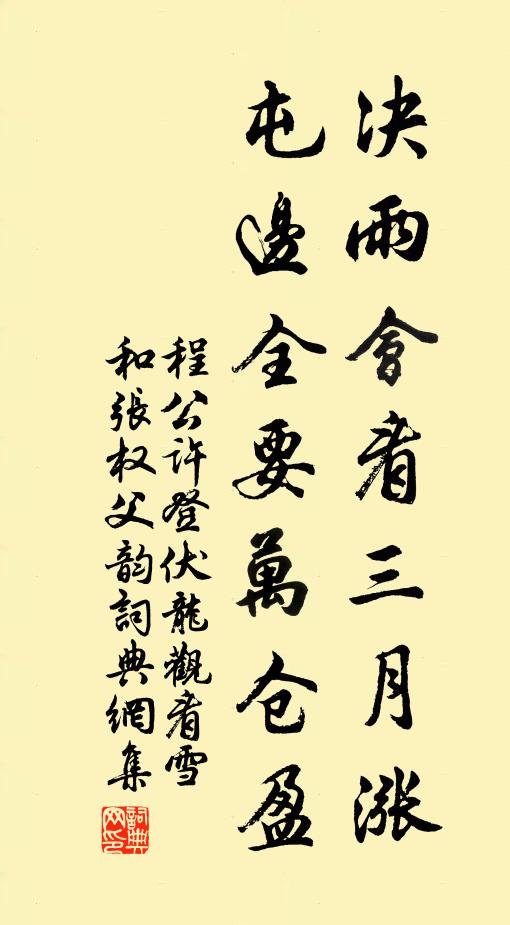 决雨會看三月漲
屯邊全要萬仓盈
程公许登伏龍觀看雪
和張权父韵詞典網集
詞典
网印